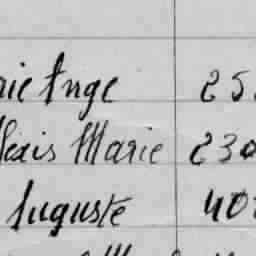 rie Ange 25
lexis Marie 230
Auguste 40